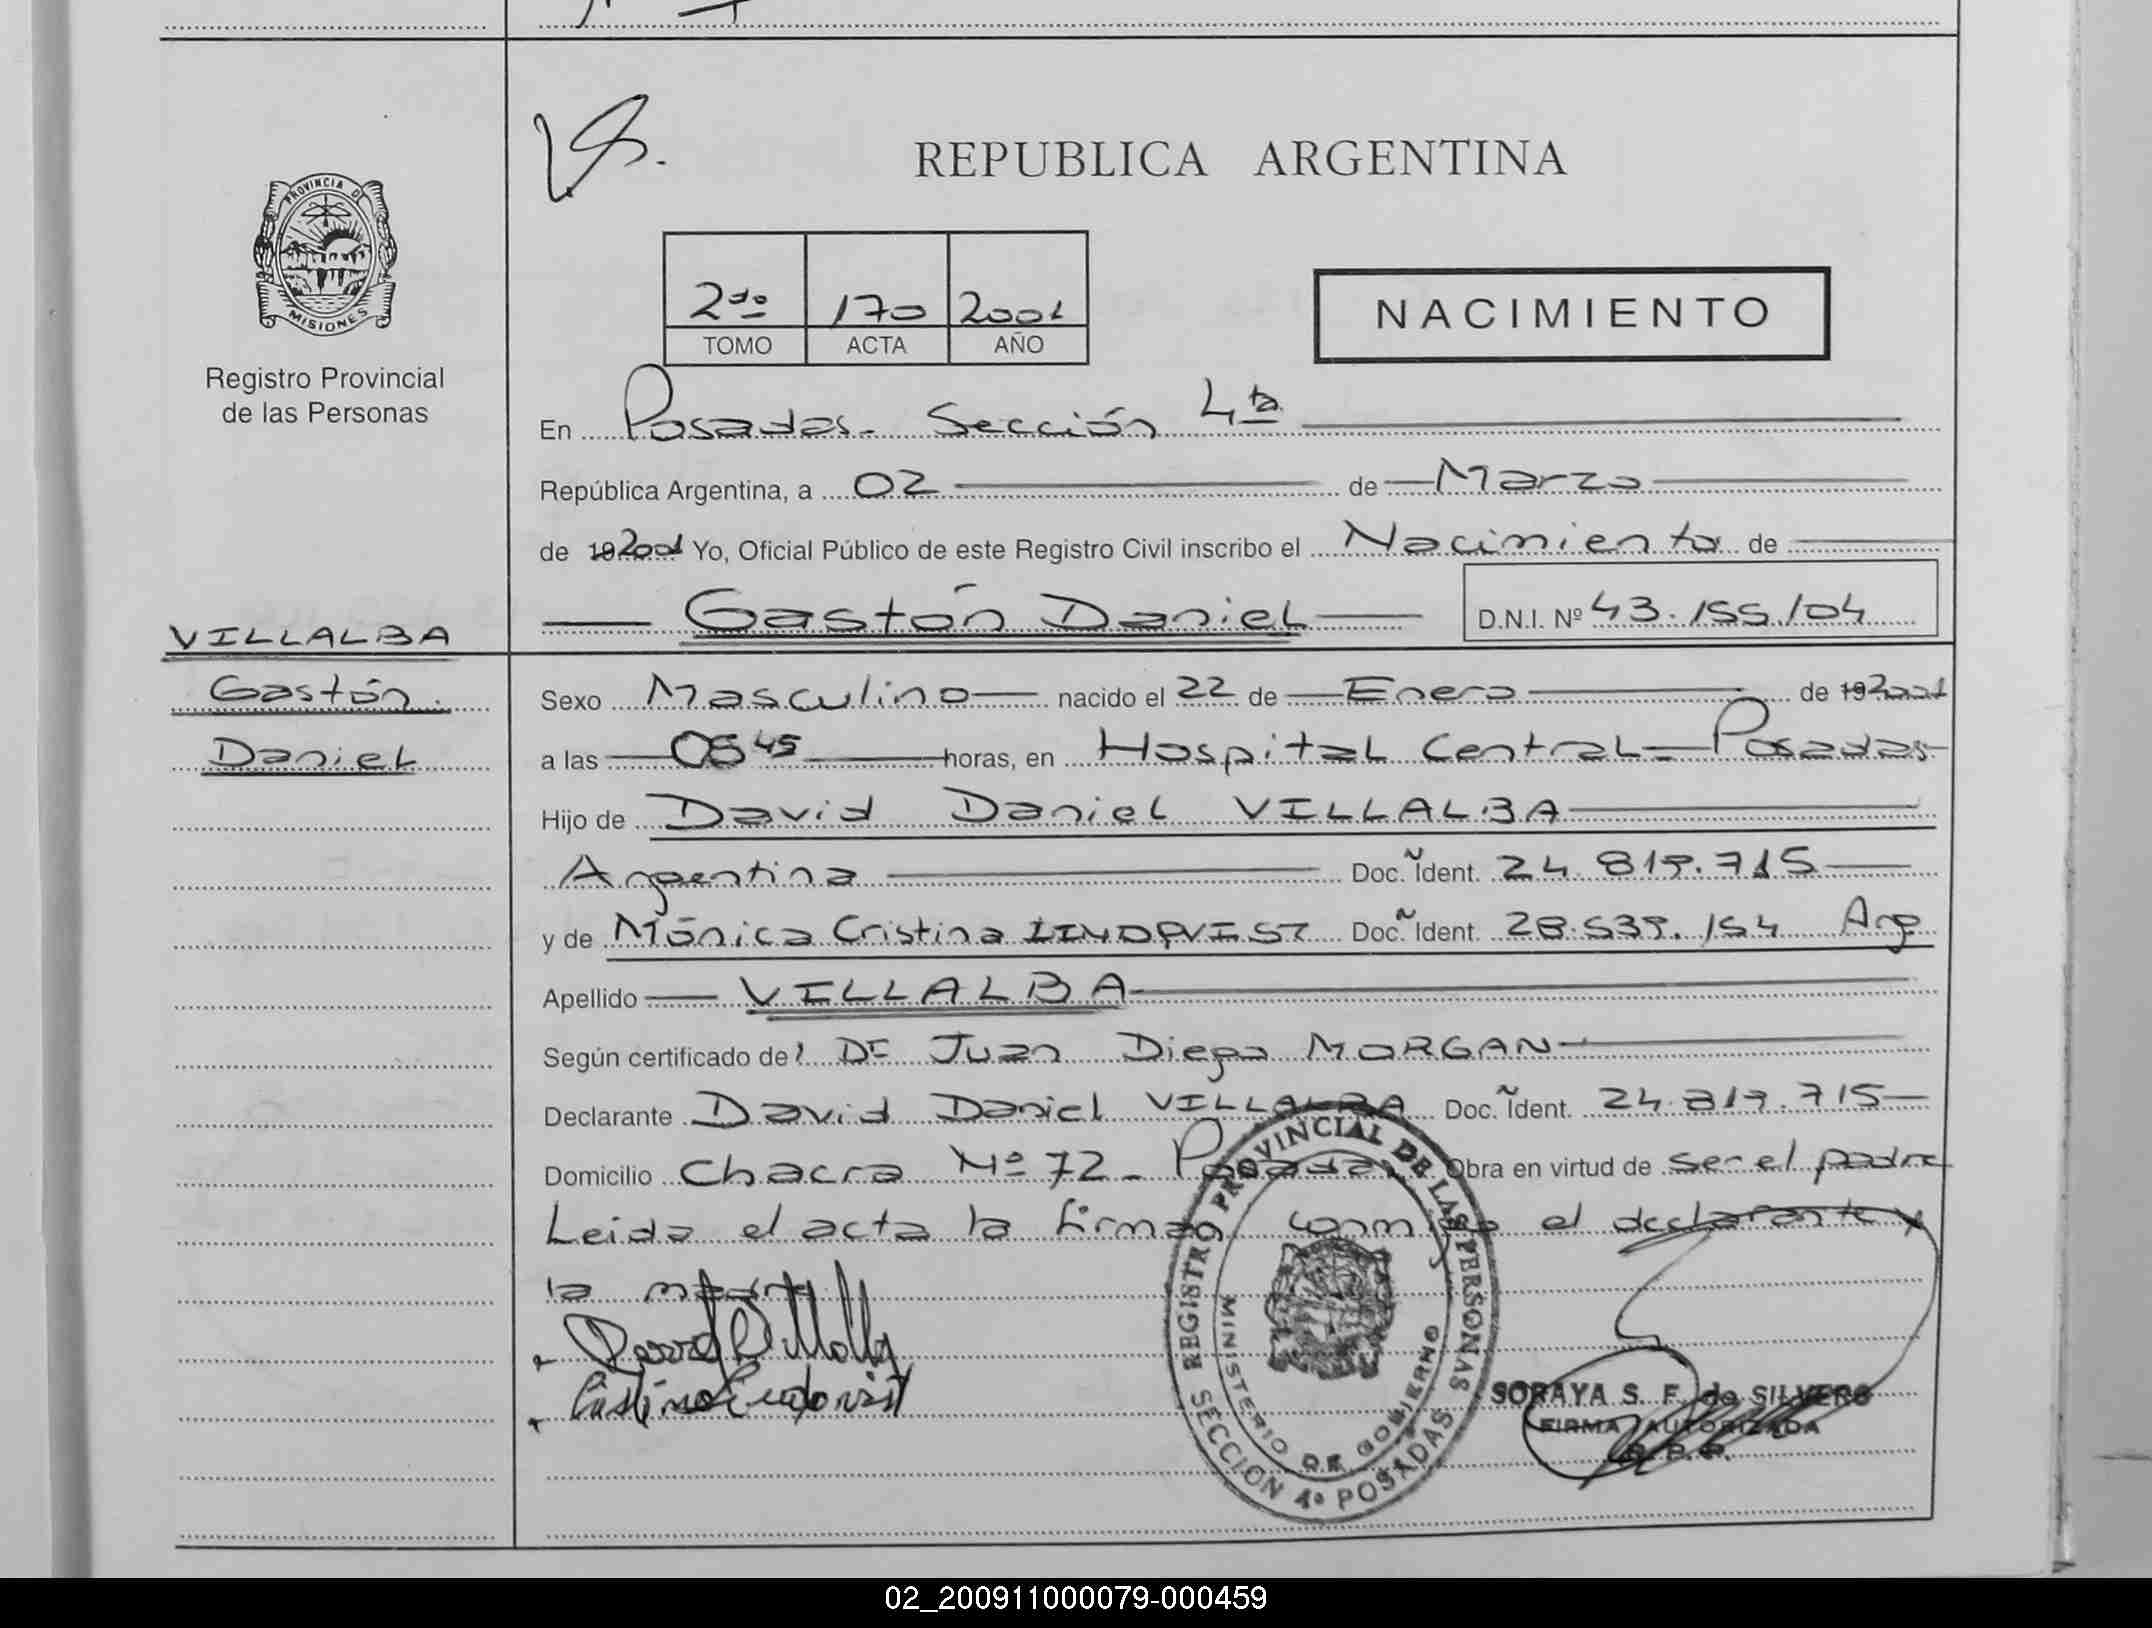 REPUBLICA ARGENTINA
PROVINCIA DE MISIONES
Registro Provincial
de las Personas
2do 170 2001
TOMO ACTA AÑO
NACIMIENTO
En Posadas - Sección 4ta
República Argentina, a 02 de Marzo
de 192001 Yo, Oficial Público de este Registro Civil inscribo el Nacimiento de
Gastón Daniel D.N.I. Nº 43.155.104
VILLALBA
Gastón
Daniel
Sexo Masculino nacido el 22 de Enero de 192001
a las horas, en Hospital Central - Posadas
Hijo de David Daniel VILLALBA
Argentina Doc. Ident. 24.819.715
y de Mónica Cristina LINDQVIST Doc. Ident. 28.539.154 Arg
Apellido VILLALBA
Según certificado de Dr Juan Diego MORGAN
Declarante David Daniel VILLALBA Doc. Ident. 24.819.715
Domicilio Chacra Nº 72 - Posadas Obra en virtud de ser el padre
Leida el acta la firman conmigo el declarante y
la madre
REGISTRO PROVINCIAL DE LAS PERSONAS
MINISTERIO DE GOBIERNO
SECCION 4º POSADAS
SORAYA S. F. de SILVERO
FIRMA AUTORIZADA
R. P. P.
02_200911000079-000459